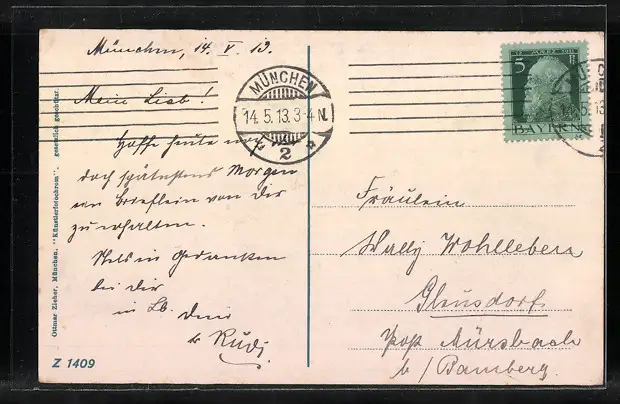 München, 14. V. 13.
Mein Lieb!
Hoffe heute noch
doch spätestens Morgen
ein Brieflein von Dir
zu erhalten.
Stets in Gedanken
bei Dir
in Lb. Dein
Rudi
MÜNCHEN
14.5.13. 3-4 N.
2
5
BAYERN
Fräulein
Wally Wohlleben
Gleusdorf
Post Mürsbach
b/Bamberg.
Ottmar Zieher, München. "Künstlerfotochrom". gesetzlich geschützt.
Z 1409